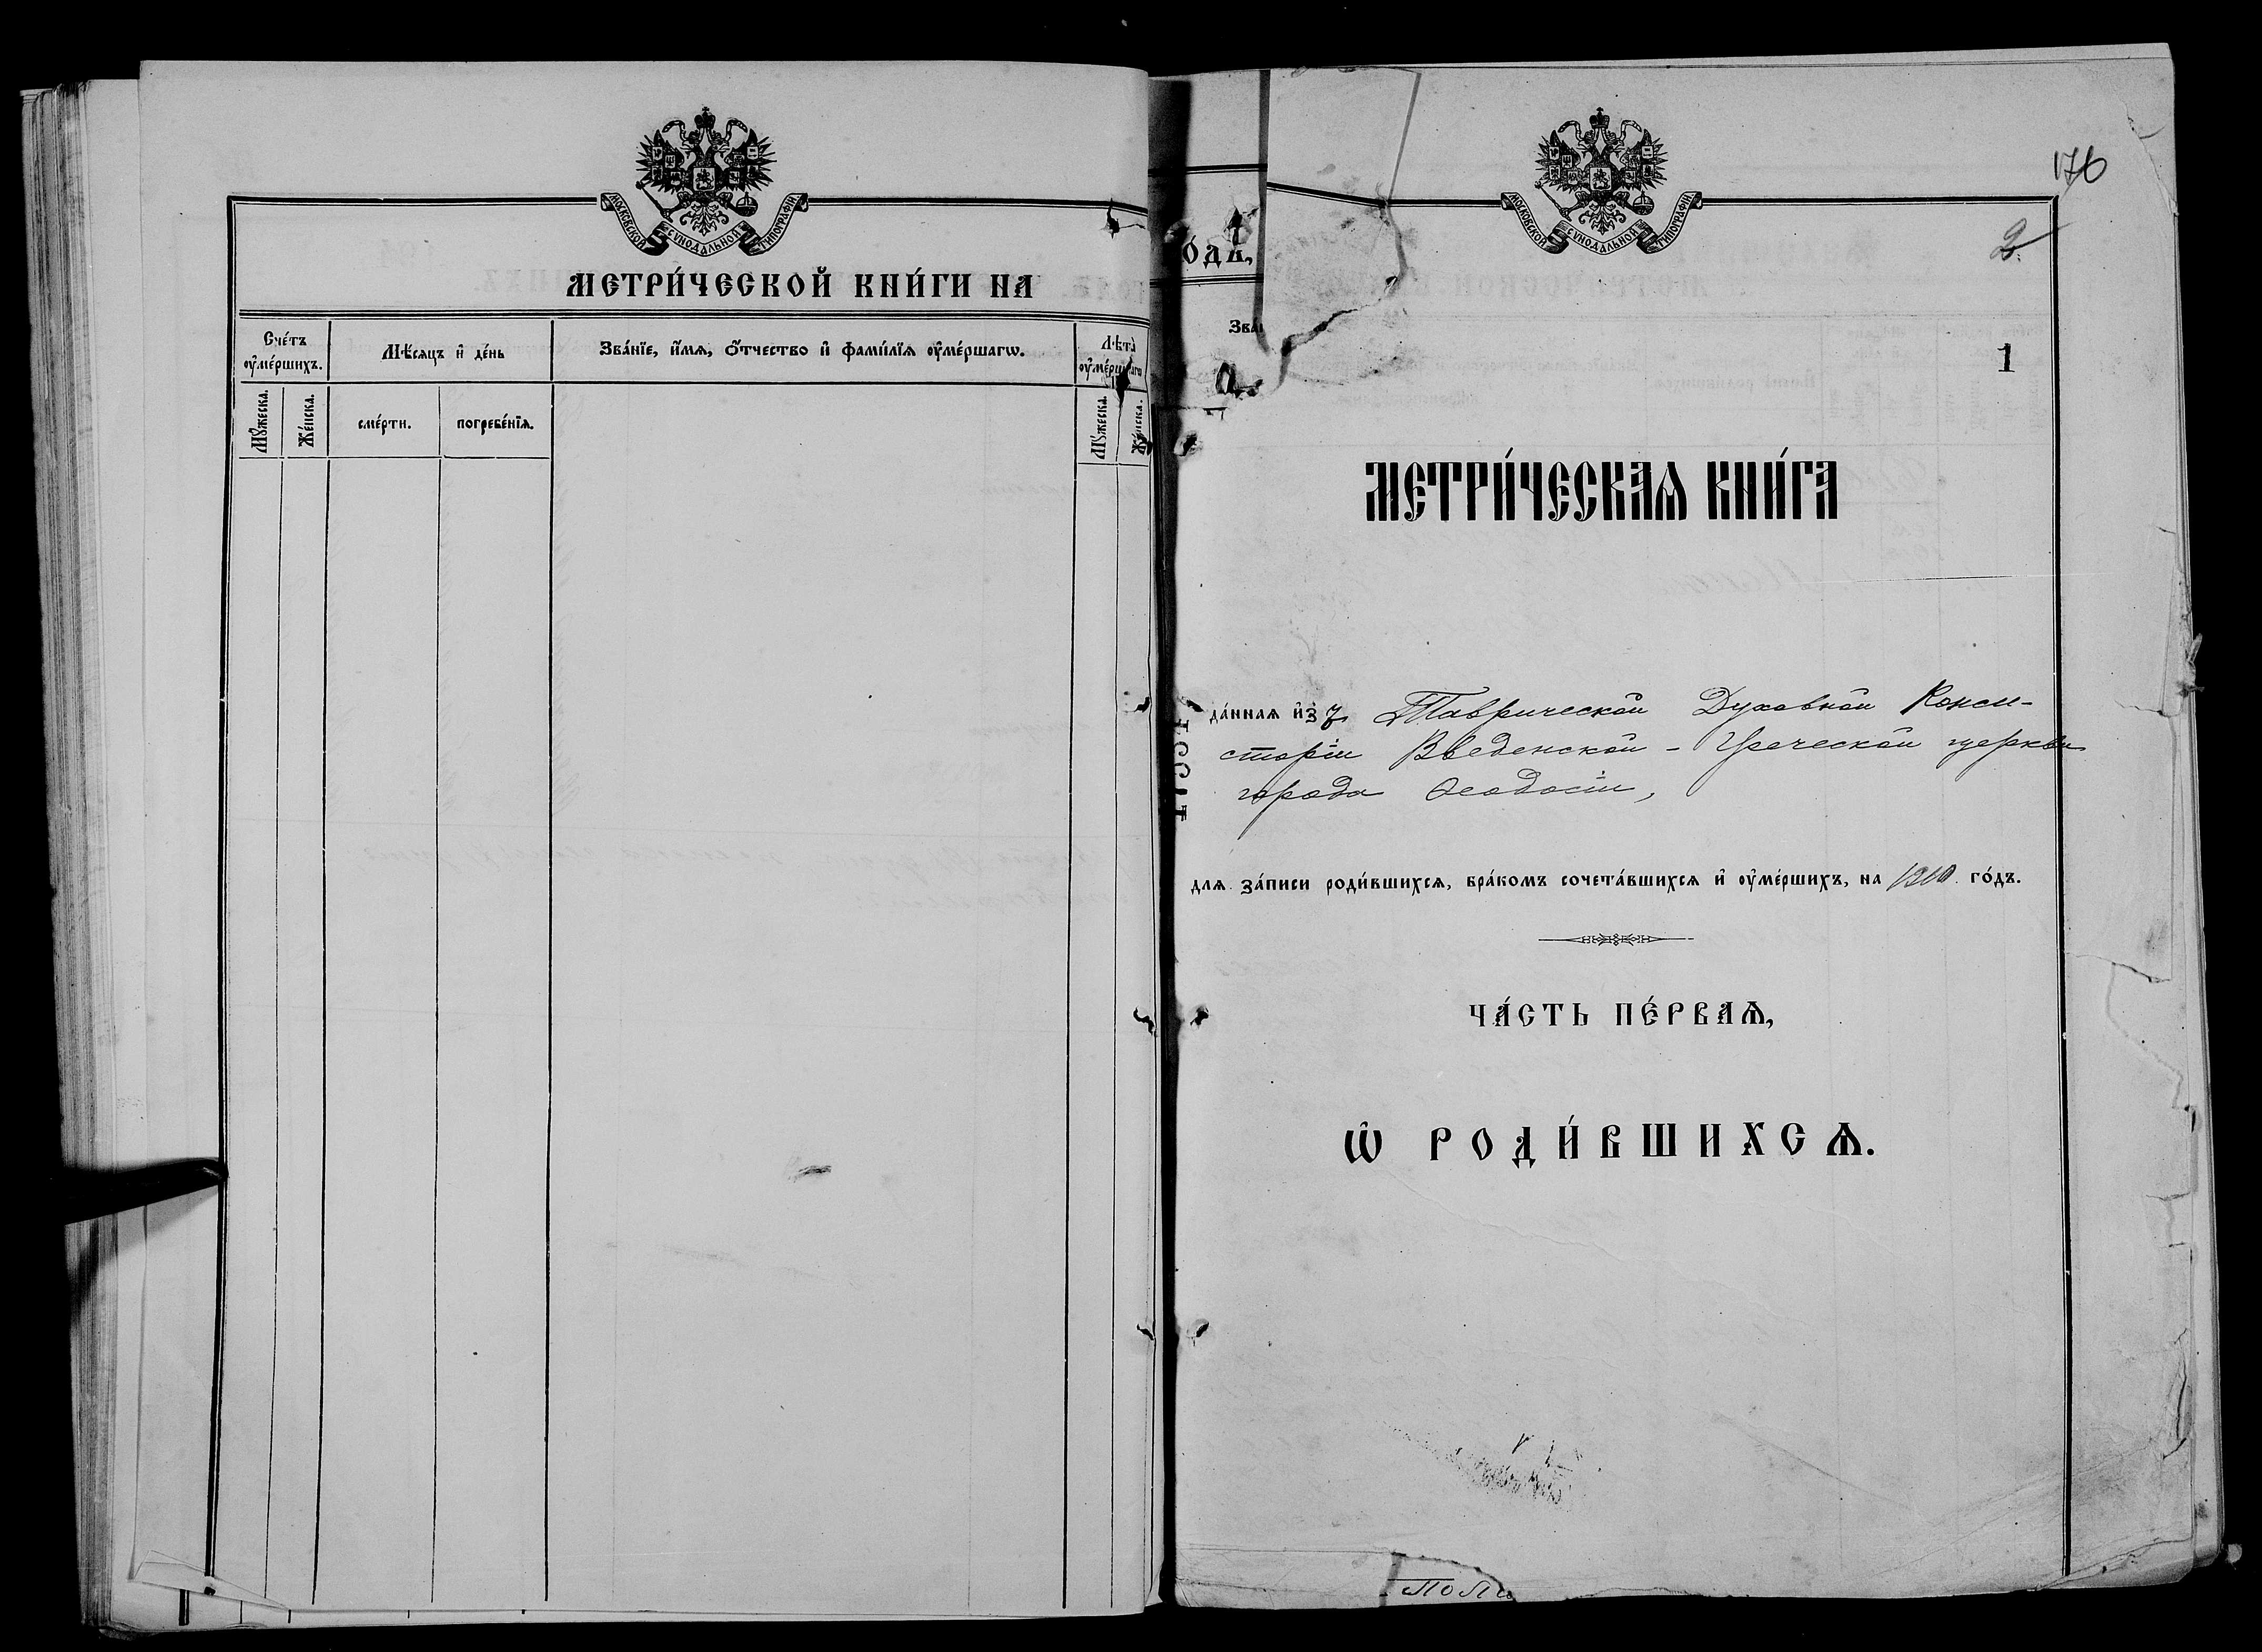 МОСКОВСКОЙ СѴНОДАЛЬНОЙ ТИПОГРАФІИ
МЕТРИ́ЧЕСКОЙ КНИ́ГИ НА
Сче́тъ ᲂу҆ме́ршихъ.
Мѣ́сяцъ и҆ де́нь
Зва́нїе, и҆́мя, ѻ҆́тчество и҆ фами́лїя ᲂу҆ме́ршагѡ.
Лѣта̀ ᲂу҆ме́ршагѡ
Мꙋ́жеска.
Же́нска.
сме́рти.
погребе́нїя.
Мꙋ́жеска.
Же́нска.
о́дъ,
Зва́
МОСКОВСКОЙ СѴНОДАЛЬНОЙ ТИПОГРАФІИ
176
2
1
МЕТРИ́ЧЕСКАѦ КНИ́ГА
да́нная и҆зъ Таврической Духовной Конси-
сторіи Введенской - Греческой церкви
города Ѳеодосіи,
для за́писи роди́вшихся, бра́комъ сочета́вшихся и҆ ᲂу҆ме́ршихъ, на 1910 го́дъ.
ЧА́СТЬ ПЕ́РВАѦ,
Ѡ҆ РОДИ́ВШИХСѦ.